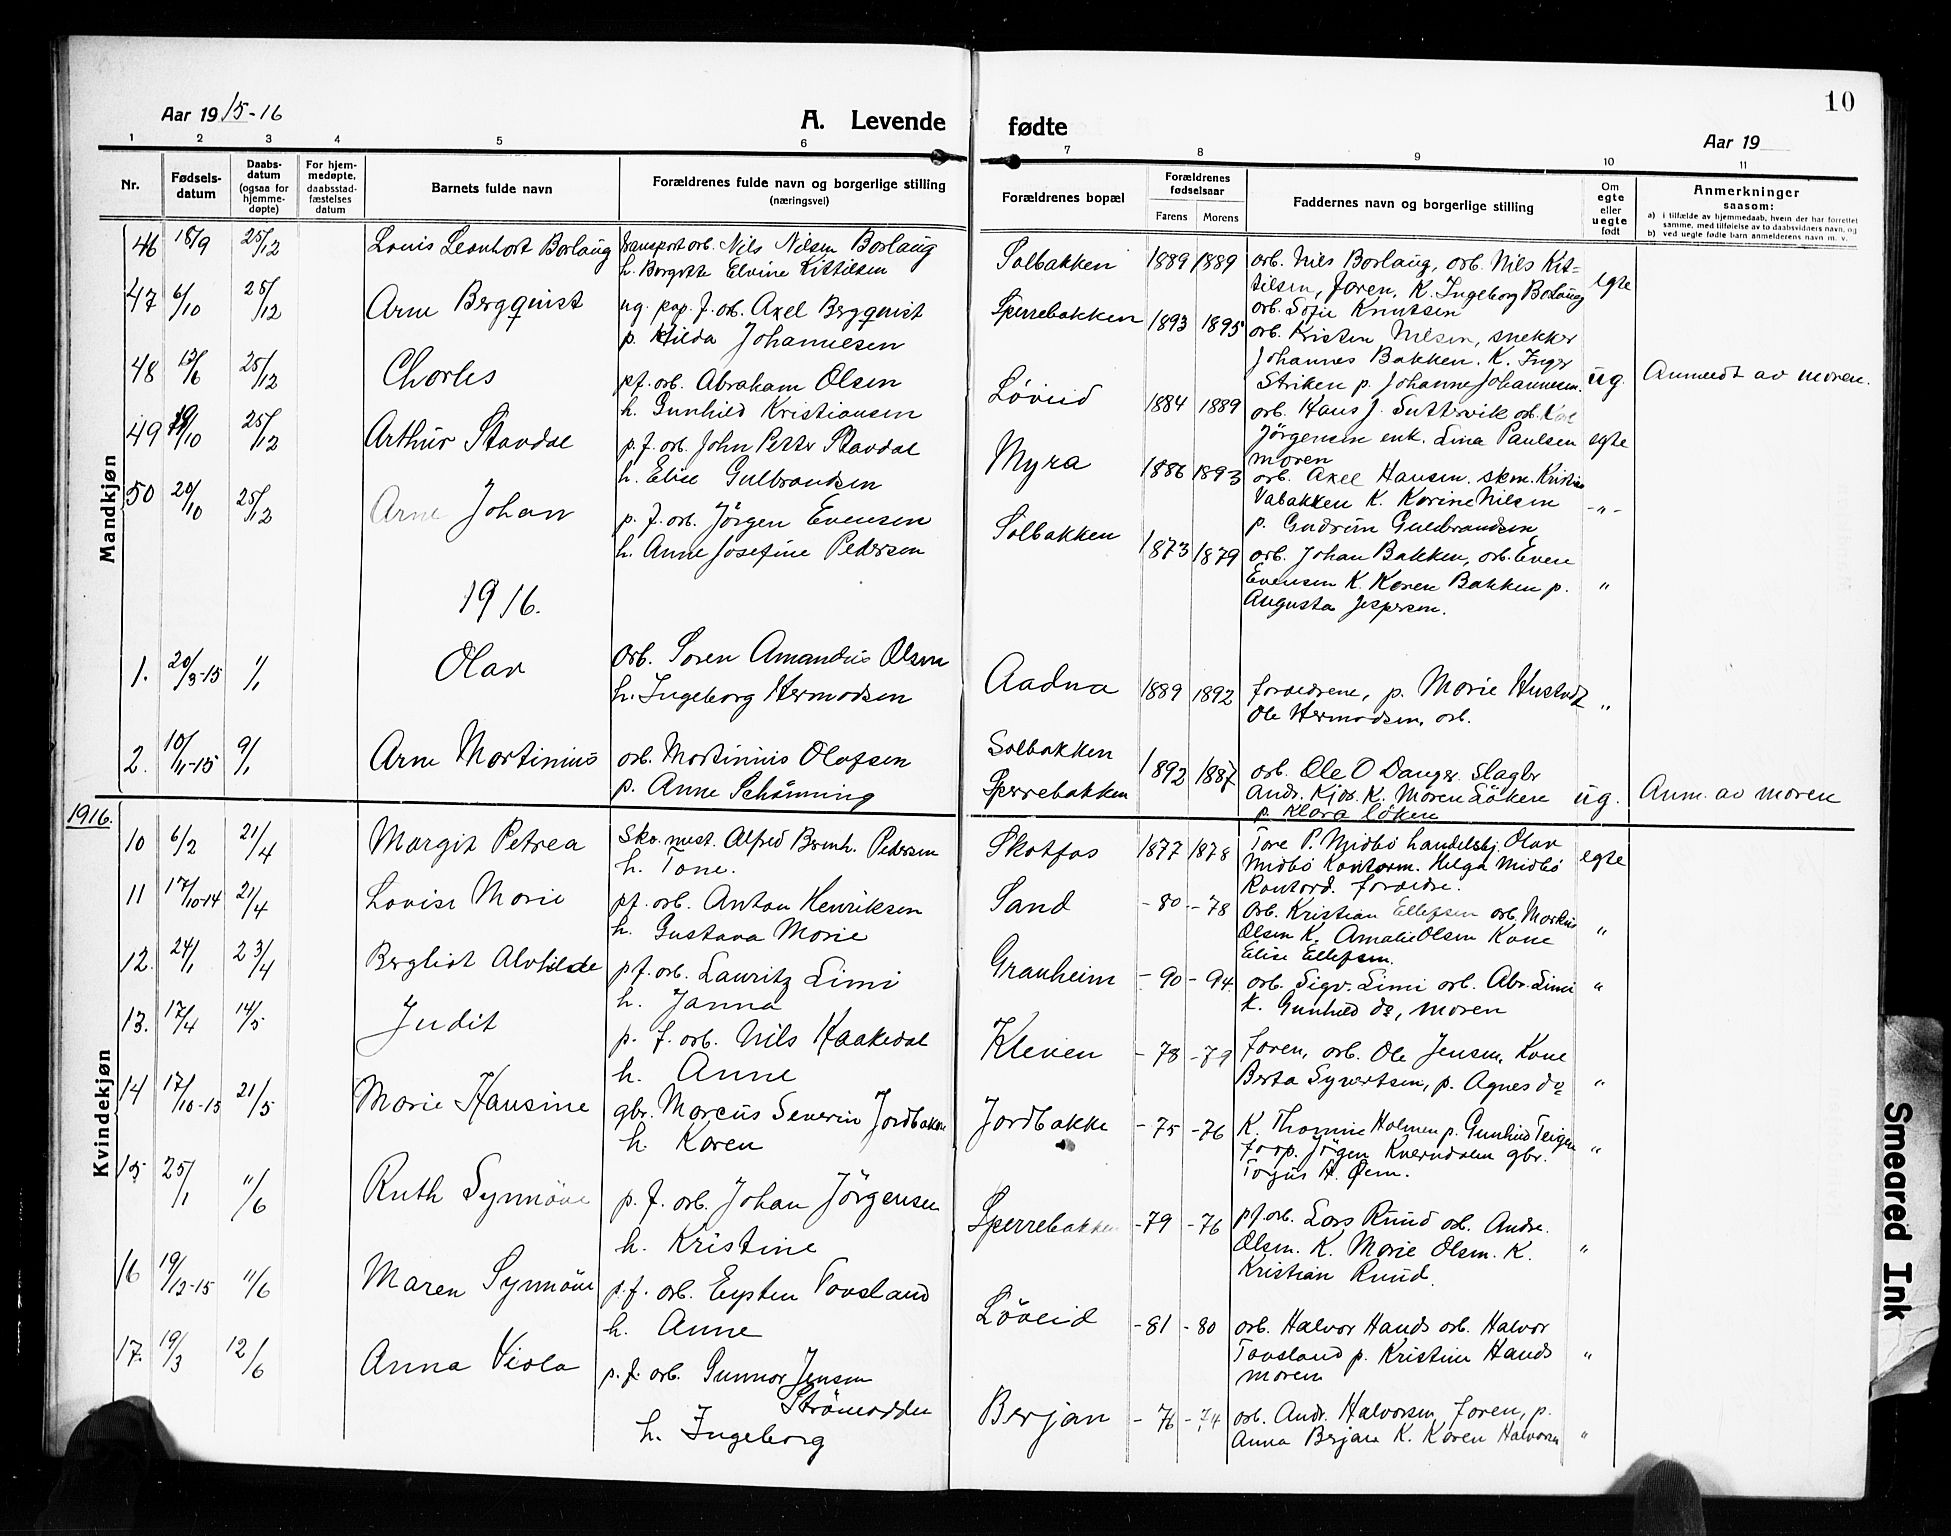 10
Aar 1915-16
A. Levende fødte
Aar 19
1 2 3 4 5 6 7 8 9 10 11
Nr.
Fødsels-datum
Daabs-datum (ogsaa for hjemme-døpte)
For hjem-medøpte, daabsstad-fæstelses datum
Barnets fulde navn
Forældrenes fulde navn og borgerlige stilling (næringsvei)
Forældrenes bopæl
Forældrenes fødselsaar
Farens Morens
Faddernes navn og borgerlige stilling
Om egte eller uegte født
Anmerkninger saasom:
a) i tilfælde av hjemmedaab, hvem der har forrettet samme, med tilføielse av to daabsvidners navn, og
b) ved uegte fødte barn anmelderens navn m. v.
Mandkjøn
46 18/9 25/12 Louis Leonhart Borlaug
transportarb. Nils Nilsen Borlaug
h. Borgitte Elvine Kittilsen
Solbakken 1889 1889
arb. Nils Borlaug, arb. Nils Kit-
tilsen, faren, K. Ingeborg Borlaug
arb. Sofie Knutsen
egte
47 6/10 25/12 Arne Bergquist
ug. pap. f. arb. Axel Bergquist
p. Hilda Johannesen
Sperrebakken 1893 1895
arb. Kristen Nilsen, snekker
Johannes Bakken. K. Inger
Striken p. Johanne Johannesen.
ug. Anmeldt av moren.
48 13/6 25/12 Charles
pf. arb. Abraham Olsen
h. Gunhild Kristiansen
Løveid 1884 1889
arb. Hans J. Suttervik arb.
Jörgensen enk. Lina Paulsen
moren
egte
49 19/10 25/12 Arthur Stavdal
p. f. arb. John Petter Stavdal
h. Elise Gulbrandsen
Myra 1886 1893
arb. Axel Hansen. skm. Kristian
Vabakken K. Karine Nilsen
p. Gudrun Gulbrandsen
-"-
50 20/10 25/12 Arne Johan
p. f. arb. Jörgen Evensen
h. Anne Josefine Pedersen
Solbakken 1873 1879
arb. Johan Bakken, arb. Even
Evensen K. Karen Bakken p.
Augusta Jespersen.
"
1916.
1. 20/3-15 1/1 Olav
Arb. Soren Amandus Olsen
h. Ingeborg Hermodsen
Aadna 1889 1892
foreldrene, p. Marie Hustvedt
Ole Hermodsen, arb.
"
2. 10/11-15 9/1 Arne Martinius
arb. Martinius Olafsen
p. Anne Schánning
Solbakken
Sperrebakken
1892 1887
arb. Ole O Danger. Slagbr
Andr. Kjos. K. Maren Löken
p. Klara Löken
ug. Anm. av moren
1916.
Kvindekjøn
10 6/2 21/4 Margit Petrea
Sko. mest. Alfred Bernh. Pedersen
h. Tone.
Skotfos 1877 1878
Tore P. Midbö handelsbj. Olav
Midbö Kontorm. Helga Midbö
Kontord. foreldre.
egte
11 17/10-14 21/4 Lovise Marie
pf. arb. Anton Henriksen
h. Gustava Marie
Sand - 80 - 78
Arb. Kristian Ellefsen arb. Markus
Olsen K. Amalie Olsen Kone
Elise Ellefsen.
"
12. 24/1 23/4 Bergliot Alvhilde
pf. arb. Lauritz Limi
h. Janna
Granheim - 90 - 94.
arb. Sigv. Limi arb. Abr. Limi
K. Gunhild do, moren
"
13. 17/4 14/5 Judit
p. f. arb. Nils Haakedal
h. Anne
Kleven - 78 - 79
faren, arb. Ole Jensen, Kone
Berta Syvertsen, p. Agnes do
"
14 17/10-15 21/5 Marie Hansine
gbr. Marcus Severin Jordbakke
h. Karen
Jordbakke - 75 - 76
K. Thomine Holmen p. Gunhild Teigen
forp. Jörgen Kverndalen gbr.
Torjus H. Øem.
"
15 25/1 11/6 Ruth Synnöve
p. f. arb. Johan Jörgensen
h. Kristine
Sperrebakken - 79 - 76
pf. arb. Lars Ruud arb. Andr.
Olsen. K. Marie Olsen. K.
Kristian Ruud.
"
16 19/12-15 11/6 Maren Synnöve
p. f. arb. Eysten Tovsland
h. Anne
Löveid - 81 - 80
arb. Halvor Hands arb. Halvor
Tovsland p. Kristine Hands
moren
"
17. 19/3 12/6 Anna Viola
p. f. arb. Gunnar Jensen
Strömodden
h. Ingeborg
Berjan - 76 - 74
arb. Andr. Halvorsen, faren, p.
Anna Berjan K. Karen Halvorsen
"
Smeared Ink